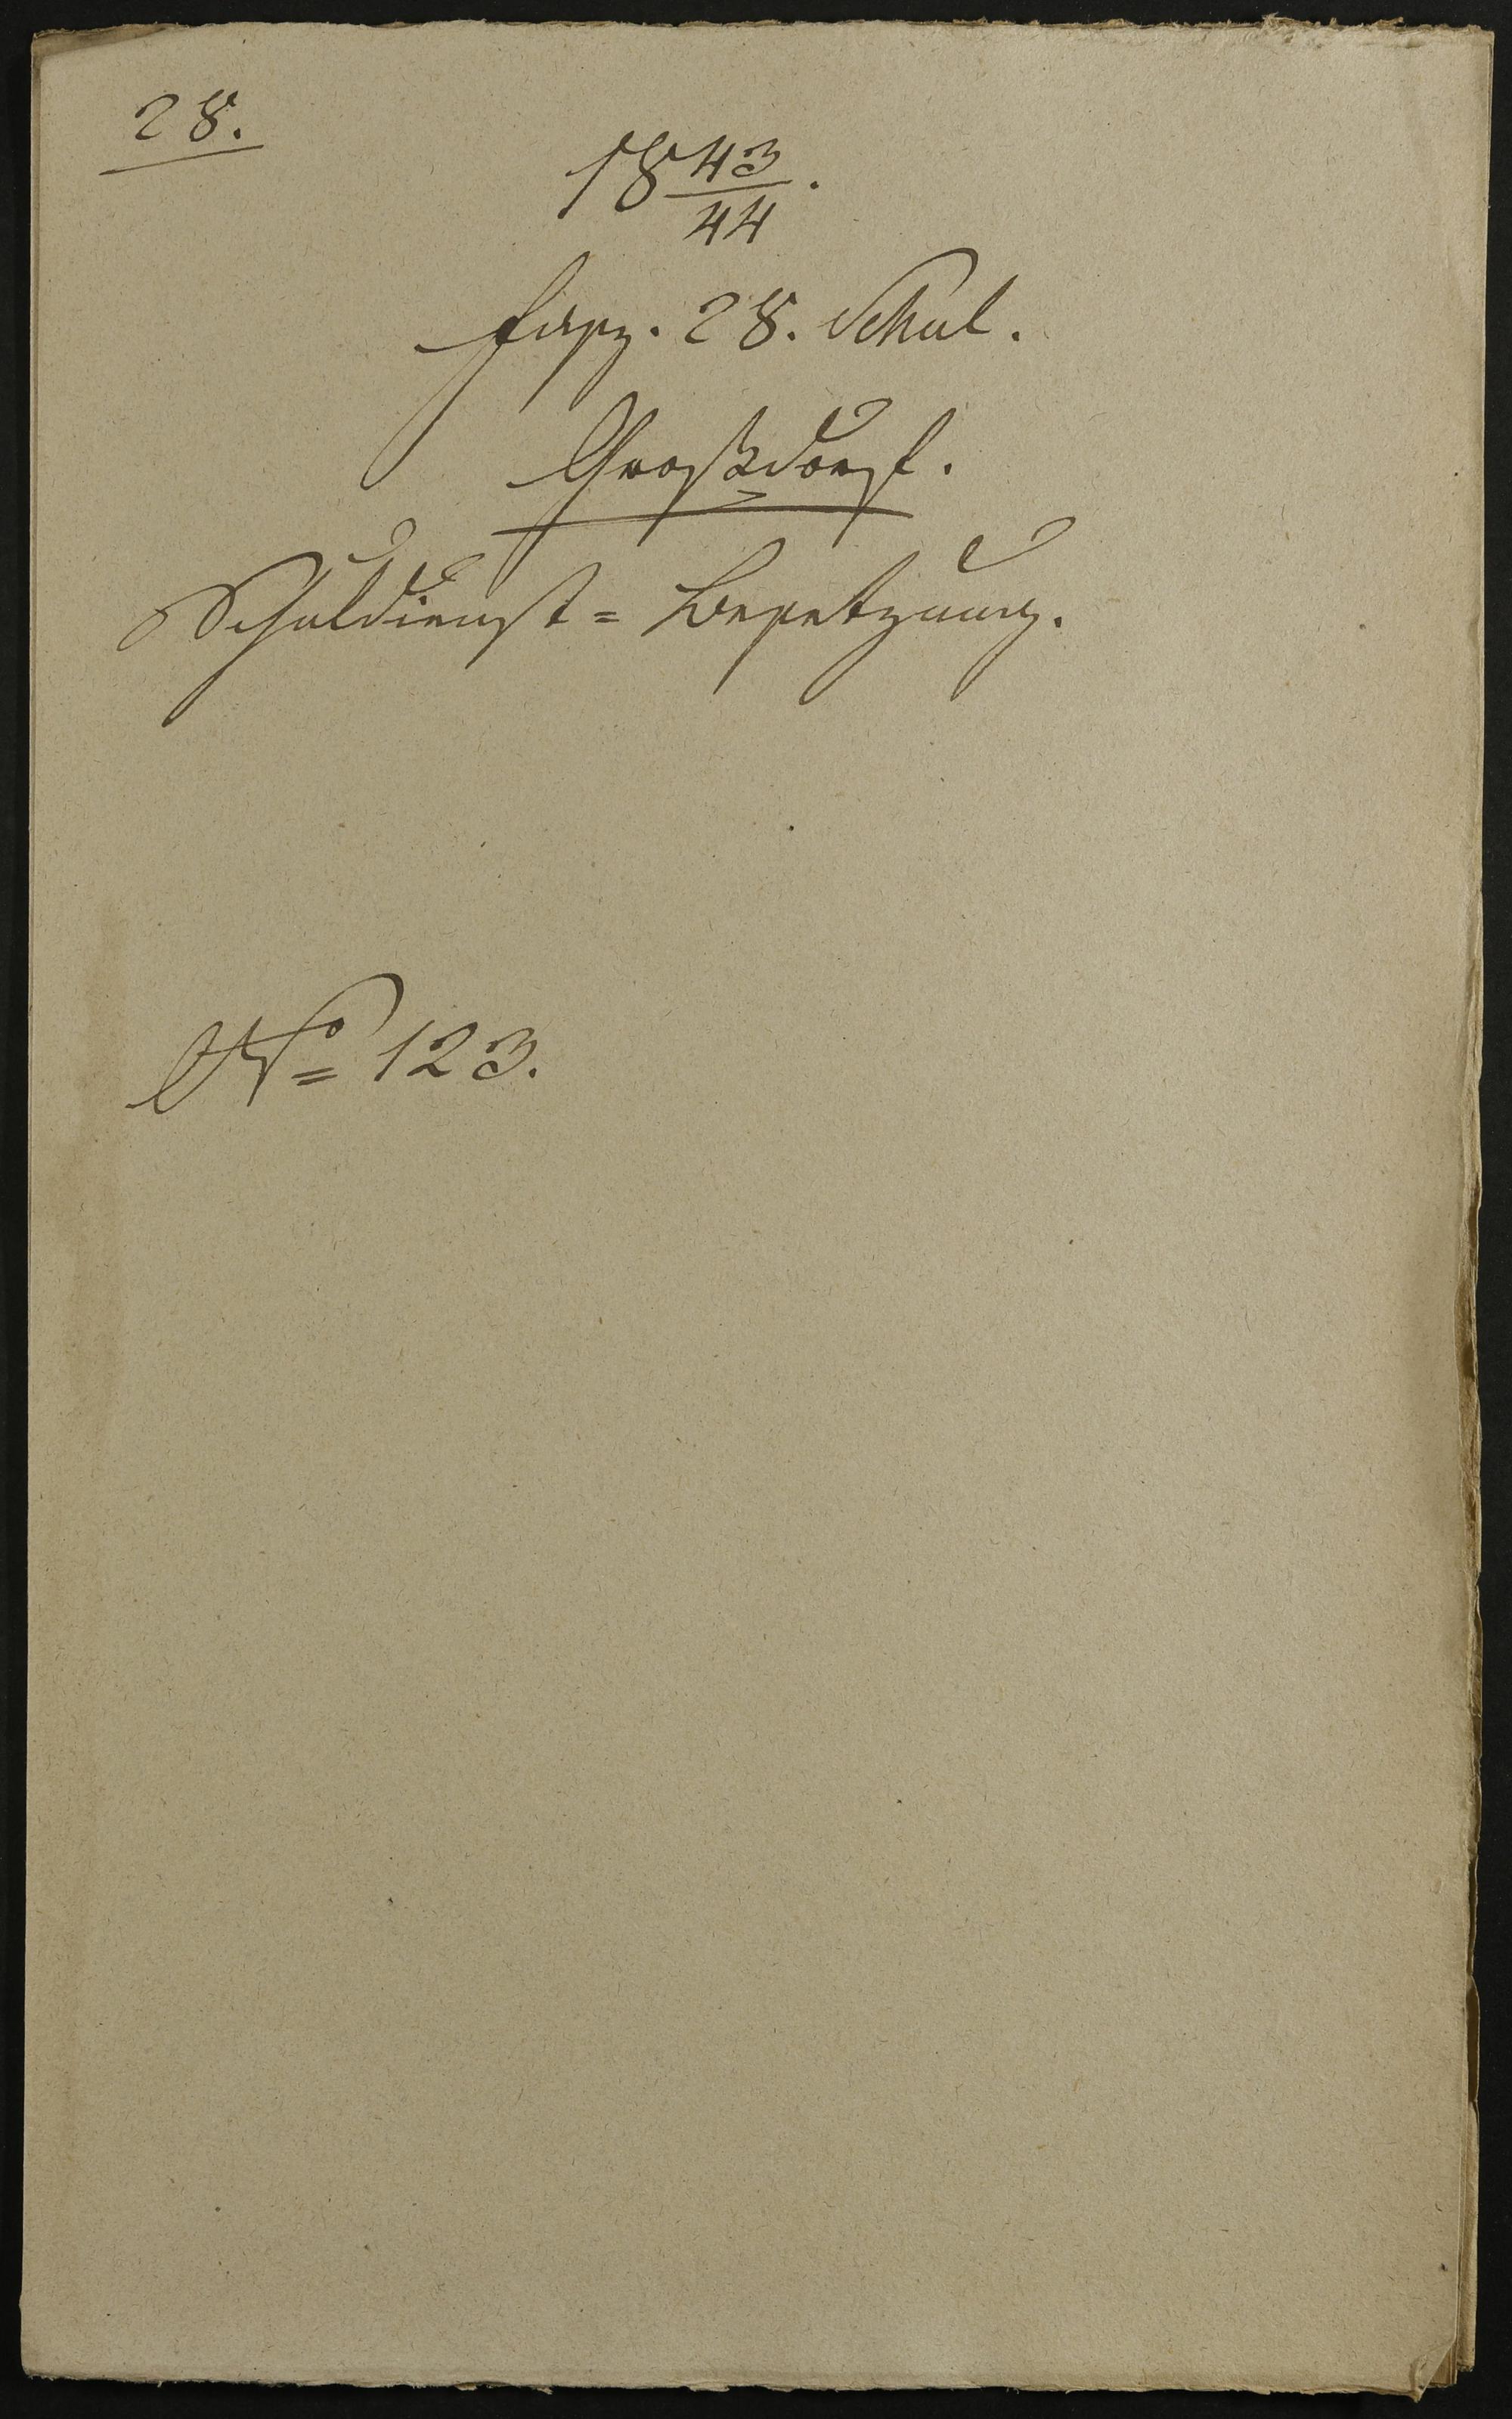 28.
18 43/44.
fasz. 28. Schul.
Großdorf.
Schuldienst= Besetzung.
No 123.